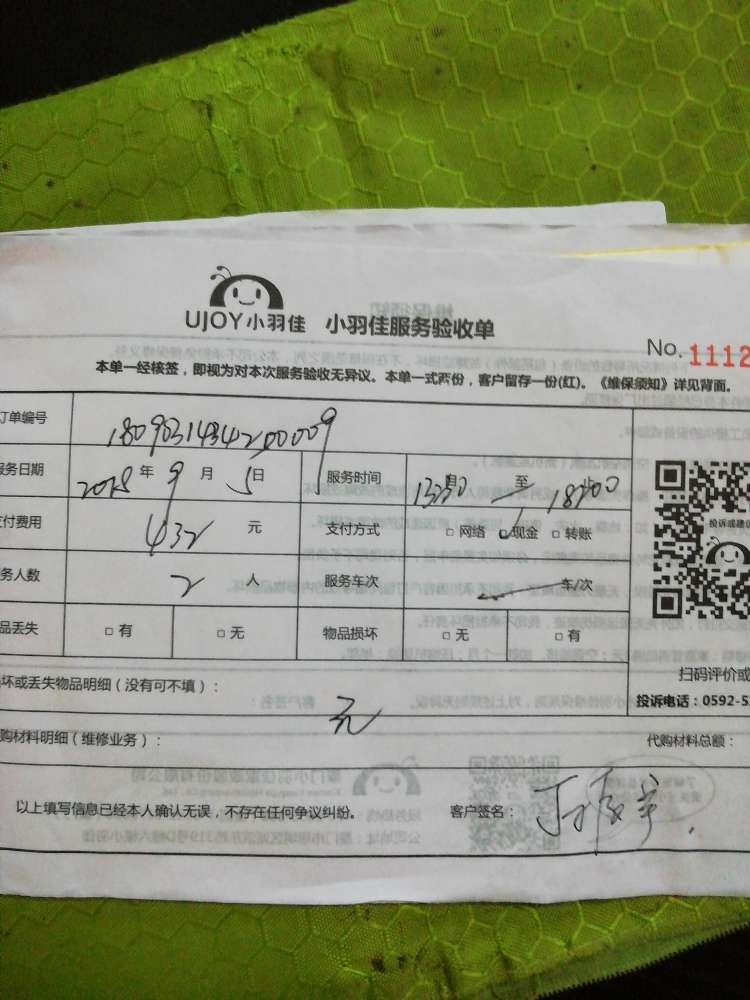 UJOY小羽佳 小羽佳服务验收单
No. 1112
本单一经核签，即视为对本次服务验收无异议。本单一式两份，客户留存一份(红)。《维保须知》详见背面。
订单编号 1809031434200009
服务日期 2018 年 9 月 5 日 服务时间 13:30 至 18:00
支付费用 432 元 支付方式 □ 网络 □ 现金 □ 转账
务人数 2 人 服务车次 车/次
品丢失 □ 有 □ 无 物品损坏 □ 无 □ 有
投诉或建议
扫码评价或
投诉电话：0592-5
坏或丢失物品明细（没有可不填）：
无
购材料明细（维修业务）：
代购材料总额：
以上填写信息已经本人确认无误，不存在任何争议纠纷。 客户签名：